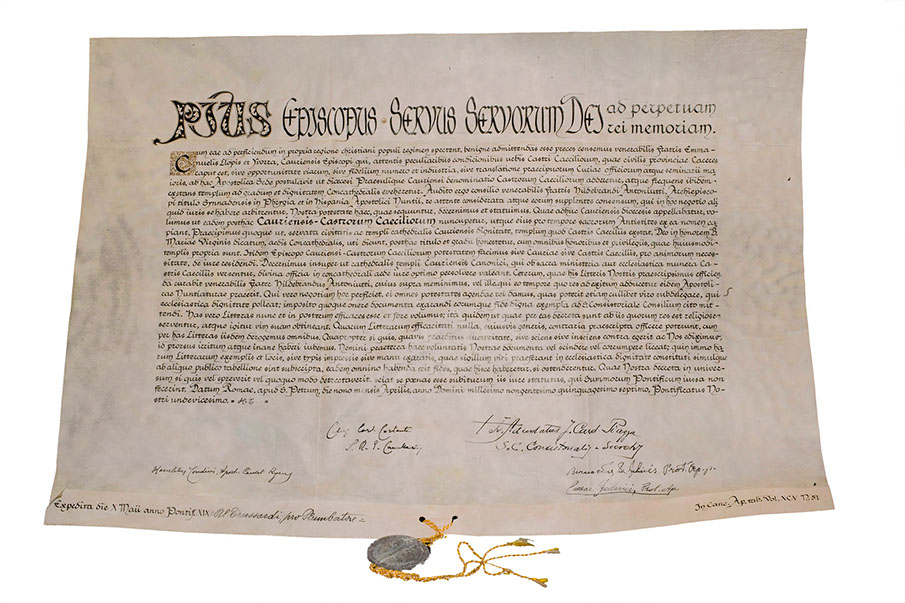 PIUS EPISCOPUS · SERVUS SERVORUM DEI ad perpetuam
rei memoriam.
Cum eae ad perficiendum in propria regione christiani populi regimen spectent, benigne admittendas esse preces censemus venerabilis Fratris Emma-
nuelis Llopis et Ivorra, Cauriensis Episcopi qui, attentis peculiaribus condicionibus urbis Castri Caeciliorum, quae civilis provinciae Caceres
caput est, sive opportunitate viarum, sive fidelium numero et industria, sive translatione praecipuorum Curiae officiorum atque seminarii ma-
ioris, ab hac Apostolica Sede postulavit ut dioecesi Praesulique Cauriensi denominatio Castrorum Caeciliorum adderetur, atque simul ibidem
exstans templum ad gradum et dignitatem Concathedralis eveheretur. Audito ergo consilio venerabilis Fratris Hildebrandi Antoniutti, Archiepisco-
pi titulo Synnadensis in Phrygia et in Hispania Apostolici Nuntii, re attente considerata atque eorum suppleto consensu, qui in hoc negotio ali-
quid iuris se habere arbitrentur, Nostra potestate haec, quae sequuntur, decernimus et statuimus. Quae adhuc Cauriensis Dioecesis appellabatur, vo-
lumus ut eadem posthac Cauriensis-Castrorum Caeciliorum nuncupetur, utque eius pro tempore sacrorum Antistites ex ea nomen ca-
piant. Praecipimus quoque ut, servata civitatis ac templi cathedralis Cauriensis dignitate, templum quod Castris Caeciliis exstat, Deo in honorem B.
Mariae Virginis dicatum, aedis Concathedralis, uti dicunt, posthac titulo et gradu honestetur, cum omnibus honoribus et privilegiis, quae huiusmodi
templis propria sunt. Itidem Episcopo Cauriensi-Castrorum Caeciliorum potestatem facimus sive Cauriae sive Castris Caeciliis, pro animorum neces-
sitate, de iure residendi. Decernimus insuper ut cathedralis templi Cauriensis Canonici, qui ob sacra ministeria aut ecclesiastica munera Ca-
stris Caeciliis versentur, divina officia in concathedrali aede iure optimo persolvere valeant. Ceterum, quae his Litteris Nostris praescripsimus efficien-
da curabit venerabilis Frater Hildebrandus Antoniutti, cuius supra meminimus, vel ille qui eo tempore quo res ad exitum adducetur eidem Apostoli-
cae Nuntiaturae praeerit. Qui vero negotium hoc perficiet, ei omnes potestates agendae rei damus, quas poterit etiam cuilibet viro subdelegare, qui
ecclesiastica dignitate polleat; imposito quoque onere documenta exarandi eorumque fide digna exempla ad S. Consistoriale Consilium cito mit-
tendi. Has vero Litteras nunc et in posterum efficaces esse et fore volumus; ita quidem ut quae per eas decreta sunt ab iis quorum res est religiose
serventur, atque igitur vim suam obtineant. Quarum Litterarum efficacitati nulla, cuiusvis generis, contraria praescripta officere poterunt, cum
per has Litteras iisdem derogemus omnibus. Quapropter si quis, quavis praeditus auctoritate, sive sciens sive insciens contra egerit ac Nos ediximus,
id prorsus irritum atque inane haberi iubemus. Nemini praeterea haec voluntatis Nostrae documenta vel scindere vel corrumpere liceat; quin immo ha-
rum Litterarum exemplis et locis, sive typis impressis sive manu exaratis, quae sigillum viri praeferant in ecclesiastica dignitate constituti simulque
ab aliquo publico tabellione sint subscripta, eadem omnino habenda erit fides, quae hisce haberetur, si ostenderentur. Quae Nostra decreta in univer-
sum si quis vel spreverit vel quoquo modo detrectaverit, sciat se poenas esse subiturum iis iure statutas, qui Summorum Pontificum iussa non
fecerint. Datum Romae, apud S. Petrum, die nono mensis Aprilis, anno Domini millesimo nongentesimo quinquagesimo septimo, Pontificatus No-
stri undevicesimo.
Fr. Adeodatus J. Card. Piazza
S. C. Consistorialis a Secretis
Prot. Ap.
Prot. Ap.
Expedita die X Maii anno Pontif. XIX pro Plumbatore
In Canc. Ap. tab. Vol. XCV N. 51